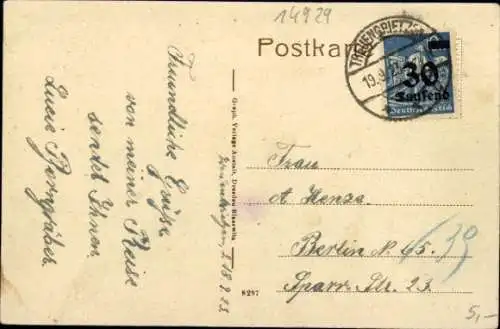 14929
Postkar
TREUENBRIETZEN
19.9.23
30
Tausend
Deutsches Reich
Freundliche Grüße
von meiner Reise
sendet Ihnen
Lucie
Graph. Verlags-Anstalt, Dresden-Blasewitz
18.9.23
Frau
A Menza.
Berlin N. 65.
Sparr Str. 23.
39
8287
5,-